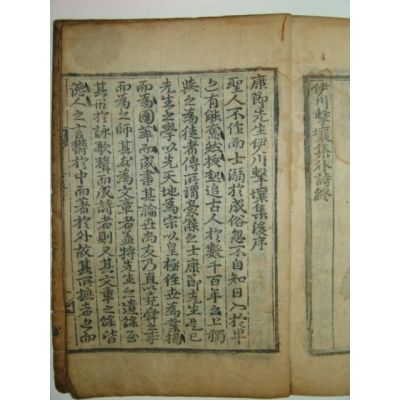 伊川擊壤集外詩終
康節先生伊川擊壤集後序
聖人不作而士溺於成俗忽不自知日入於卑
有能然拔起追古人於數千百年之上獨
與之為徒者傳所謂豪傑之士康節先生是已
先生之學以先天地為宗以皇極經世為業揭
而為圖萃而成書其論世尚友乃直以堯舜之事
而為之師其發為文章者蓋特先生之遺餘至
其形於詠歌聲而成詩者則又其文章之餘皆
德人之言鬱於中而著於外故其所者之而